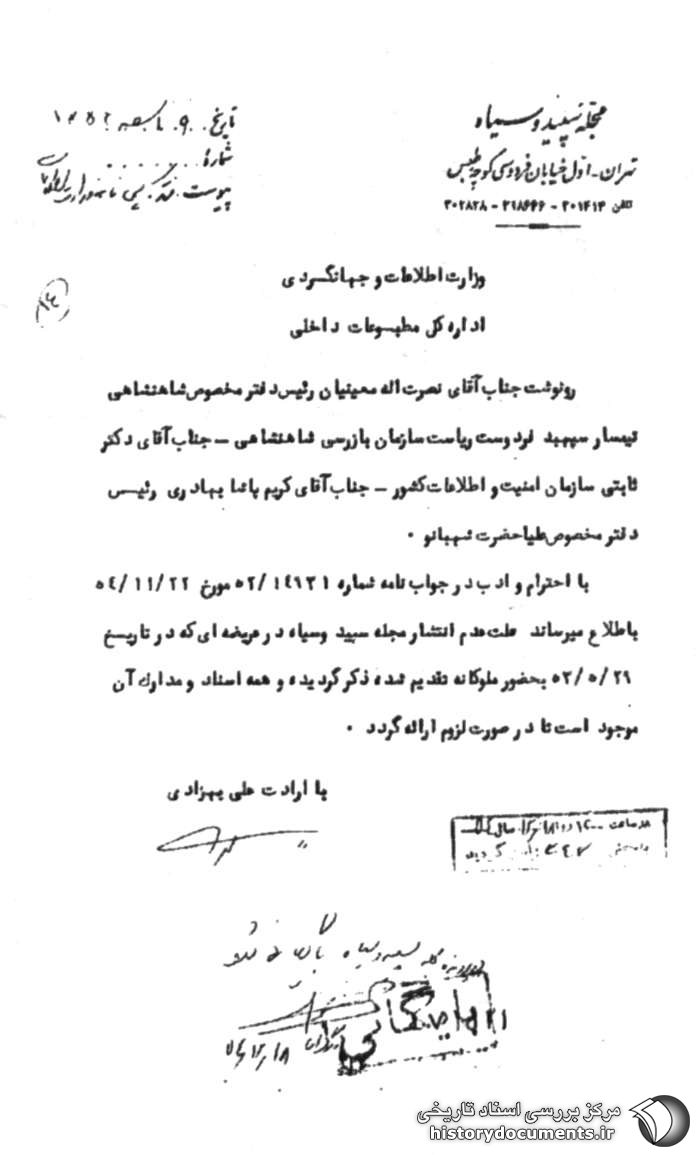 مجله سپید و سیاه
تهران - اول خیابان فردوسی کوچه طبس
تلفن ۳۰۱۴۱۴ - ۳۱۸۶۴۶ - ۳۰۲۸۲۸
تاریخ ۹
شمارهٔ
پیوست
۱۴
وزارت اطلاعات و جهانگردی
اداره کل مطبوعات داخلی
رونوشت جناب آقای نصرت اله معینیان رئیس دفتر مخصوص شاهنشاهی
تیمسار سپهبد فردوست ریاست سازمان بازرسی شاهنشاهی - جناب آقای دکتر
ثابتی سازمان امنیت و اطلاعات کشور - جناب آقای کریم پاشا بهادری رئیس
دفتر مخصوص علیاحضرت شهبانو .
با احترام و ادب در جواب نامه شماره ۵۲/۱۴۹۳۱ مورخ ۵۴/۱۱/۲۲
باطلاع میرساند علت عدم انتشار مجله سپید وسیاه در عریضه ای که در تاریخ
۵۳/۵/۲۹ بحضور ملوکانه تقدیم شده ذکر گردیده و همه اسناد و مدارک آن
موجود است تا در صورت لزوم ارائه گردد .
با ارادت علی بهزادی
در ساعت روز سال
گردید
مجله سپید و سیاه
بایگانی
مرکز بررسی اسناد تاریخی
historydocuments.ir